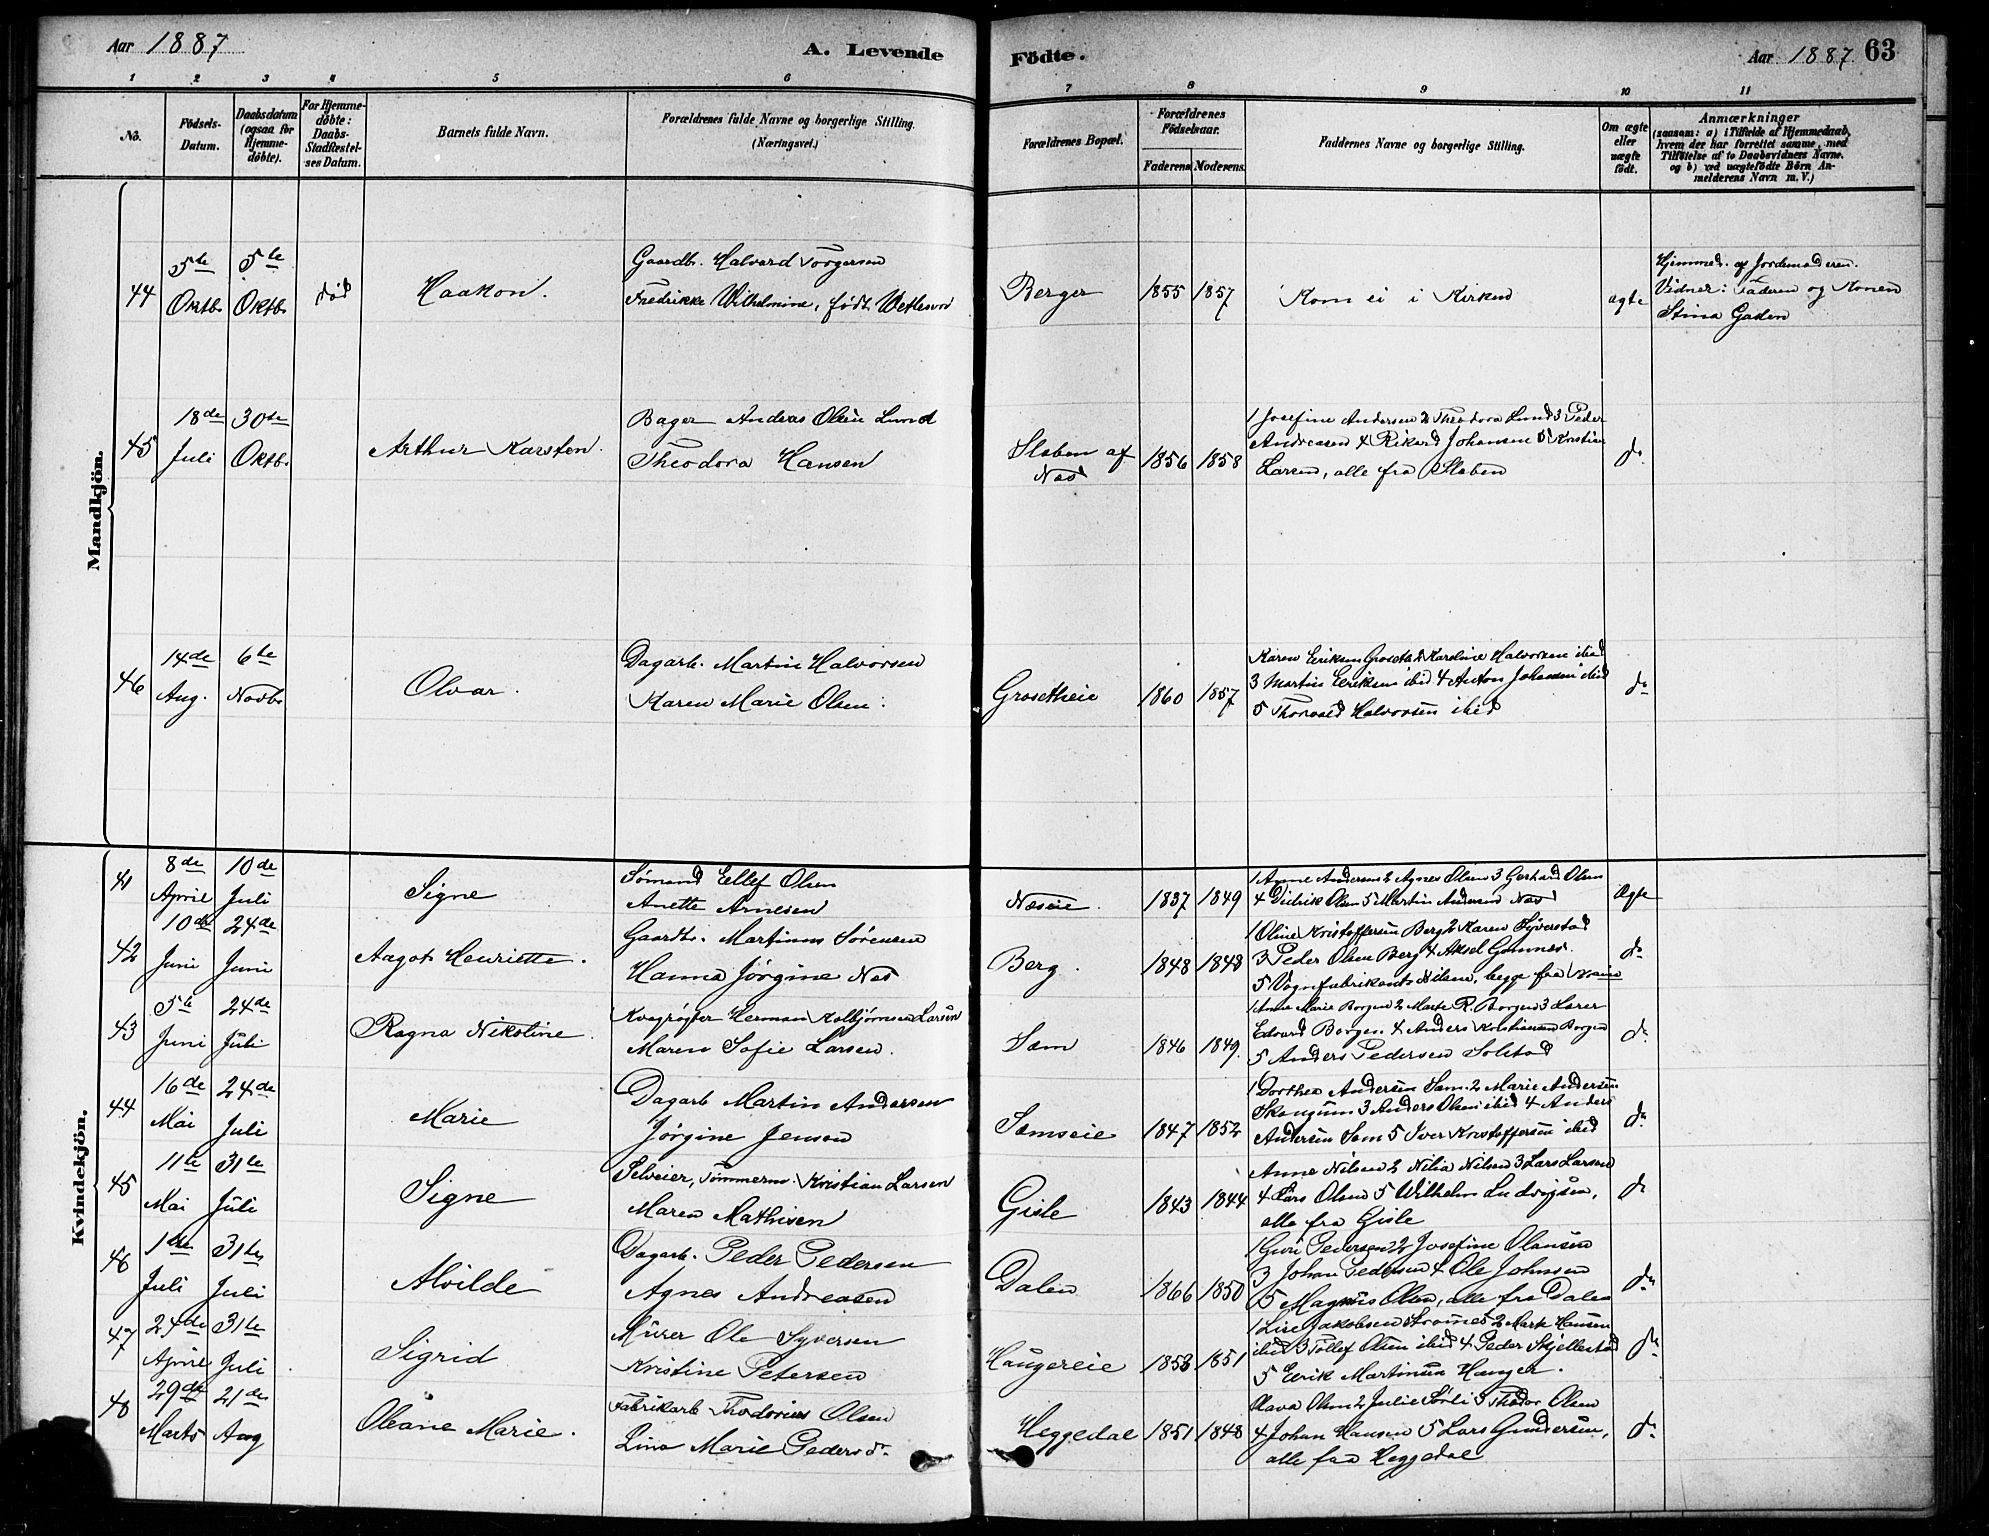 Aar 1887
A. Levende
Födte.
Aar 1887
63
1 2 3 4 5 6
7 8 9 10 11
No.
Födsels-
Datum.
Daabsdatum
(ogsaa for
Hjemme-
döbte).
For Hjemme-
döbte:
Daabs-
Stadfæstel-
ses Datum.
Barnets fulde Navn.
Forældrenes fulde Navne og borgerlige Stilling.
(Næringsvei.)
Forældrenes Bopæl.
Forældrenes
Födselsaar.
Faderens. Moderens.
Faddernes Navne og borgerlige Stilling.
Om ægte
eller
uægte
födt.
Anmærkninger
(saasom: a) i Tilfælde af Hjemmedaab,
hvem der har forrettet samme, med
Tilföielse af to Daabsvidners Navne.
og b) ved uægtefödte Börn An-
melderens Navn m. V.)
Mandkjön.
44
5te
Oktb.
5te
Oktb.
død
Haakon.
Gaardb. Halvard Torgersen
Fredrikke Wilhelmine, født Wetlesen
Berger
1855
1857
Kom ei i Kirken
ægte
Hjemmed. af Jordemoderen.
Vidner: Faderen og Konen
Stina Gaden
45
18de
Juli
30te
Oktb.
Arthur Karsten.
Bager Andreas Olsen Lund
Theodora Hansen
Slaben af
Næs
1856
1858
1 Josefine Andersen 2 Theodora Lund 3 Peder
Andreasen 4 Rikard Johansen 5 Kristian
Larsen, alle fra Slaben
do
46
14de
Aug.
6te
Novb.
Olvar.
Dagarb. Martin Halvorsen
Karen Marie Olsen.
Grosetheie
1860
1857
Karen Eriksen Groseth 2 Karoline Halvorsen ibid
3 Martin Eriksen ibid 4 Anton Johansen ibid
5 Thorvald Halvorsen ibid
do
Kvindekjön.
41
8de
April
10de
Juli
Signe
Sømand Ellef Olsen
Anette Arnesen
Næseie.
1837
1849
1 Anne Andersen 2 Agnes Olsen 3 Gerhard Olsen
4 Didrik Olsen 5 Martin Andersen Næs
Ægte
42
10de
Juni
24de
Juni
Aagot Henriette.
Gaardbr. Martinus Sørensen
Hanna Jørgine Næs
Berg.
1848
1848
1 Oline Kristoffersen Berg 2 Karen Syverstad
3 Peder Olsen Berg 4 Aksel Gommes.
5 Vognfabrikant Nilsen, begge fra
do
43
5te
Juni
24de
Juli
Ragna Nikoline.
Kvægrøgter Herman Kolbjørnsen Larsen
Maren Sofie Larsen.
Sem
1846
1849.
1 Anne Marie Borgen 2 Marte R. Borgen 3 Lærer
Edvard Borgen 4 Anders Kristiansen Borgen
5 Anders Pedersen Solstad
do
44
16de
Mai
24de
Juli
Marie
Dagarb Martin Andersen
Jørgine Jensen
Semseie
1847
1852
1 Dorthea Andersen Sem. 2 Marie Andersen
Skaugum 3 Anders Olsen ibid 4 Anders
Andersen Sem 5 Iver Kristoffersen ibid
do
45
11te
Mai
31te
Juli
Signe
Selveier, Tømmerm. Kristian Larsen
Maren Mathisen
Gisle
1843
1844
Anne Nilsen 2 Nilia Nilsen 3 Lars Larsen
4 Lars Olsen 5 Wilhelm Ludvigsen,
alle fra Gisle
do
46
1ste
Juli
31te
Juli
Alvilde
Dagarb. Peder Pedersen
Agnes Andreasen
Dalen
1866
1850
1 Guri Pedersen 2 Josefine Olansen
3 Johan Pedersen 4 Ole Johnsen
5 Magnus Olsen, alle fra Dalen
do
47
24de
April
31te
Juli
Sigrid
Murer Ole Syversen
Kristine Petersen
Haugereie
1853
1851
1 Lise Jakobsen 2 Marte Hansen
ibid 3 Tollef Olsen ibid 4 Peder Skjellestad
5 Erik Martinsen Hanger.
do
48
29de
Marts
21de
Aug
Oleane Marie.
Fabrikarb Thodorius Olsen
Lina Marie Pedersd.
Heggedal
1851
1848
Olava Olsen 2 Julie Sørli 3 Thodor Olsen
4 Johan Hansen 5 Lars Gundersen,
alle fra Heggedal
do